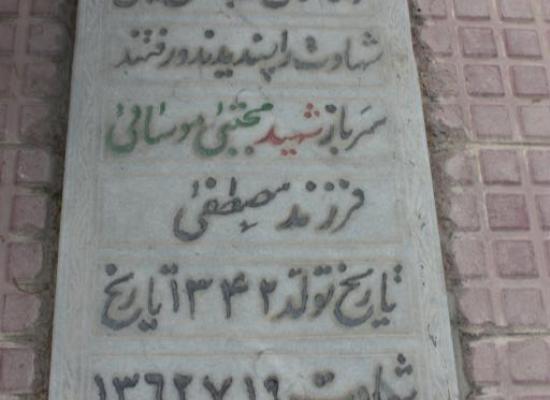 شهادت را پسندیدند و رفتند
سرباز شهید مجتبی موسائی
فرزند مصطفی
تاریخ تولد ۱۳۴۲ تاریخ
شهادت ۱۳۶۲٫۷٫۱۹